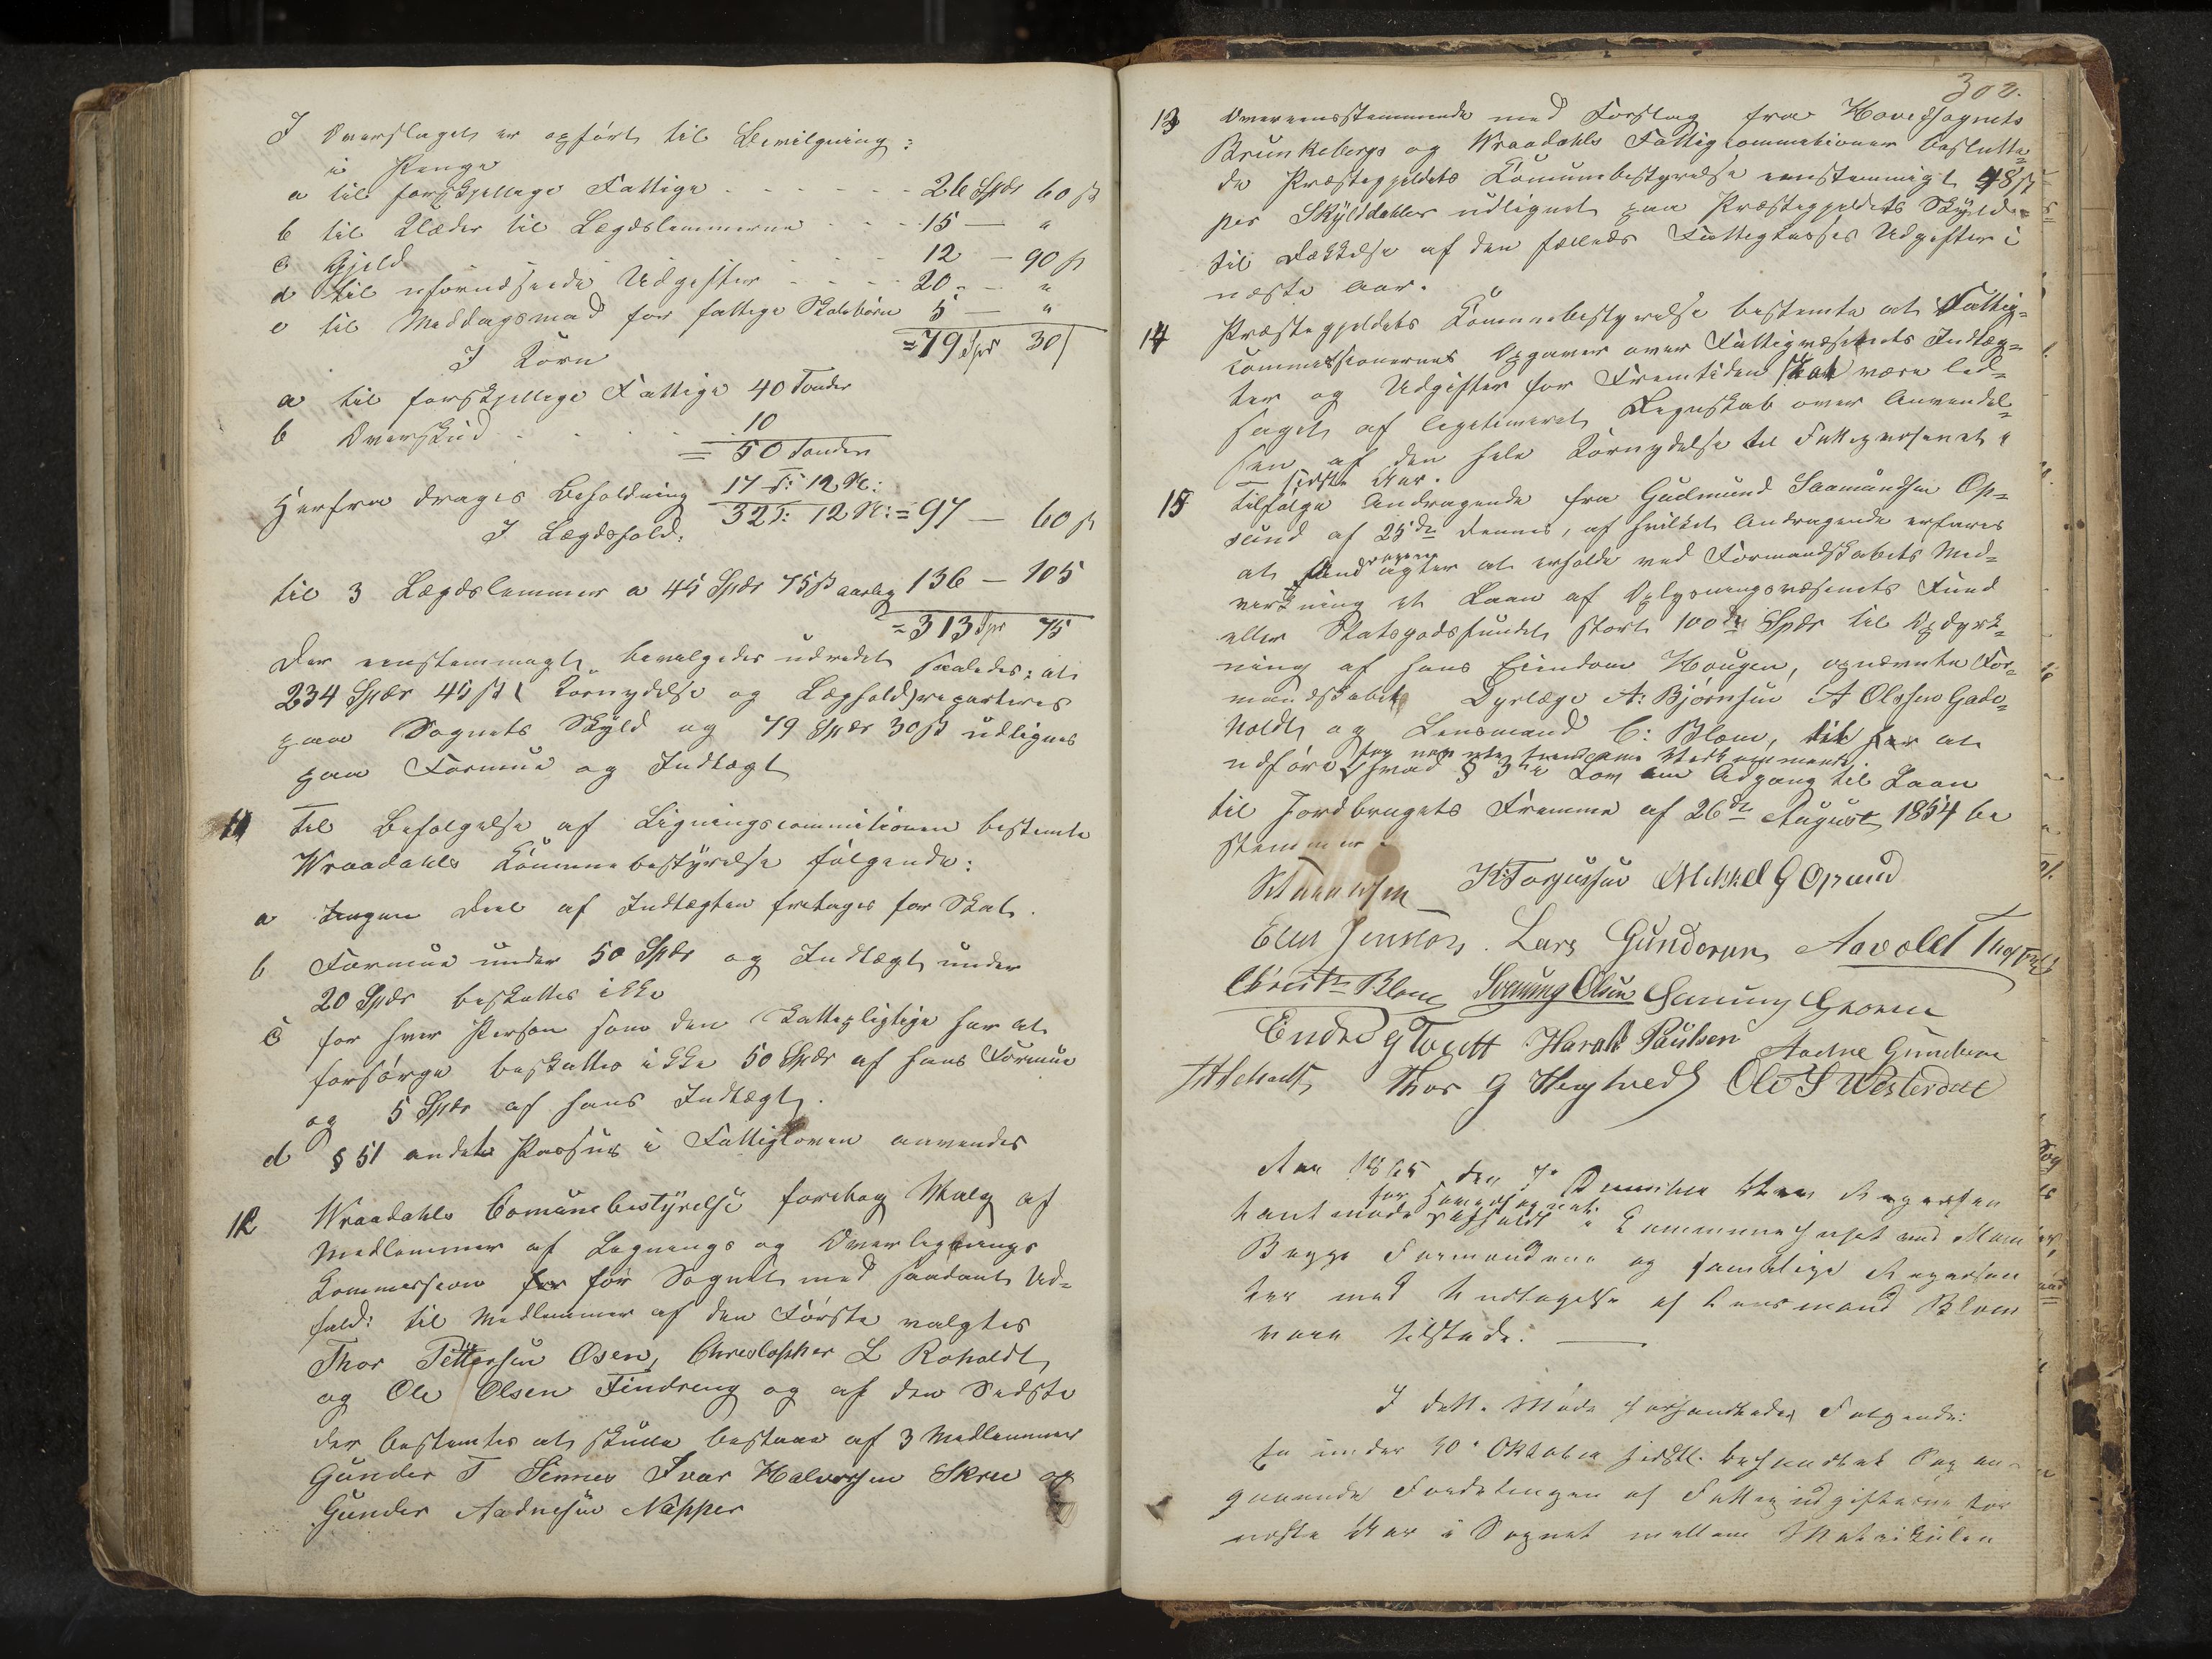 I Overslaget er opført til Bevilgning:
i Penge
a til forskjellige Fattige - - - - - 26 Spdr 60 ß
b til Klæder til Lægdslemmerne - - - 15 — "
c Gjeld - - - - 12 — 90 ß
d til uforudseede Udgifter - - - - 20 - "
e til Meddagsmad for fattige Skolebørn 5 — "
= 79 Spd 30 ß
I Korn
a til forskjellige Fattige 40 Tønder
b Overskud - - - - 10
= 50 Tønder
Herfra drages Beholdning 17 T: 12 K:
32 T: 12 K: = 97 — 60 ß
I Lægdsfold:
til 3 Lægdslemmer a 45 Spdr 75 ß aarlig 136 — 105
= 313 Spd 75
Der eenstemmigt bevilgedes udredet saaledes: at
234 Spdr 45 ß (Kornydelse og Læghold) reparteres
paa Sognets Skyld og 79 Spdr 30 ß udlignes
paa Formue og Indtægt
11 Til Befølgelse af Ligningscommitionen bestemte
Wraadahls Kommunebestyrelse følgende:
a Ingen Deel af Indtægten fritages for Skat.
b Formue under 50 Spdr og Indtægt under
20 Spdr beskattes ikke
c for hver Person som den skattepligtige har at
forsørge beskattes ikke 50 Spdr af hans Formue
og 5 Spdr af hans Indtægt.
d § 51 andet Passus i Fattigloven anvendes
12 Wraadahls Comunebestyrelse foretog Valg af
Medlemmer af Lignings og Overlignings
Kommission for for Sognet med saadant Ud-
fald: til Medlemmer af den Første valgtes
Thor Pettersen Osen, Christopher L Roholdt
og Ole Olsen Findreng og af den Sidste
der bestemtes at skulle bestaae af 3 Medlemmer
Gunder T Sinnes Ivar Halvorsen Skree og
Gunder Aadnesen Napper
302.
13 Overeensstemmende med Forslag fra Hovedsognets
Brunkebergs og Wraadahls Fattigcommitioner beslutte-
de Præstegjeldets Komunebestyrelse eenstemmigt 48 ß
per Skylddahler udlignet paa Præstegjeldets Skyld
til Dækkelse af den fælleds Fattigkasses Udgifter i
næste Aar.
14 Præstegjeldets Kommunebestyrelse bestemte at Fattig-
kommissionernes Opgaver over Fattigvæsenets Indtæg-
ter og Udgifter for Fremtiden skal være led-
saget af legitimeret Regnskab over Anvendel-
sen af den hele Kornydelse til Fattigvæsenet i
sidste Aar.
15 Tilfølge Andragende fra Gudmund Saamundsen Op-
sund af 25de dennes, af hvilket Andragende erfares
at han agter at erholde ved Formandskabets Med-
virkning et Laan af Oplysningsvæsenets Fund
eller Statsgodsfundet stort 100de Spdr til Opdyrk-
ning af hans Eiendom Hougen, opnævnte For-
mandskabet Dyrlæge A: Bjørnsen A Olssen Gade-
holdt og Lensmand C: Blom, til her at
udføre hvad § 3 i Lov om Adgang til Laan
til Jordbrugets Fremme af 26de August 1854 be
stemmer.
K Torjussen Mikkel G Opsund
Elef Jenson. Lars Gundersen Aavoldt
Christn Blom Svenung Olsen
Endre G Tvedt Harald Paulsen Aadne Gunderse
Thor G Heytvedt Ole S Westerdal
Aar 1865 den 7de December blev Repræsen
tantmøde for Hovedsognet afholdt i Kommunehuset ved Moen
Begge Formændene og samtlige Repræsen
ter med Undtagelse af Lensmand Blom
vare tilstede. —
I dette Møde forhandledes Følgende:
En under 30. Oktober sidstl. behandlet Sag an-
gaaende Fordelingen af Fattigudgifterne for
næste Aar i Sognet mellem Matrikulen